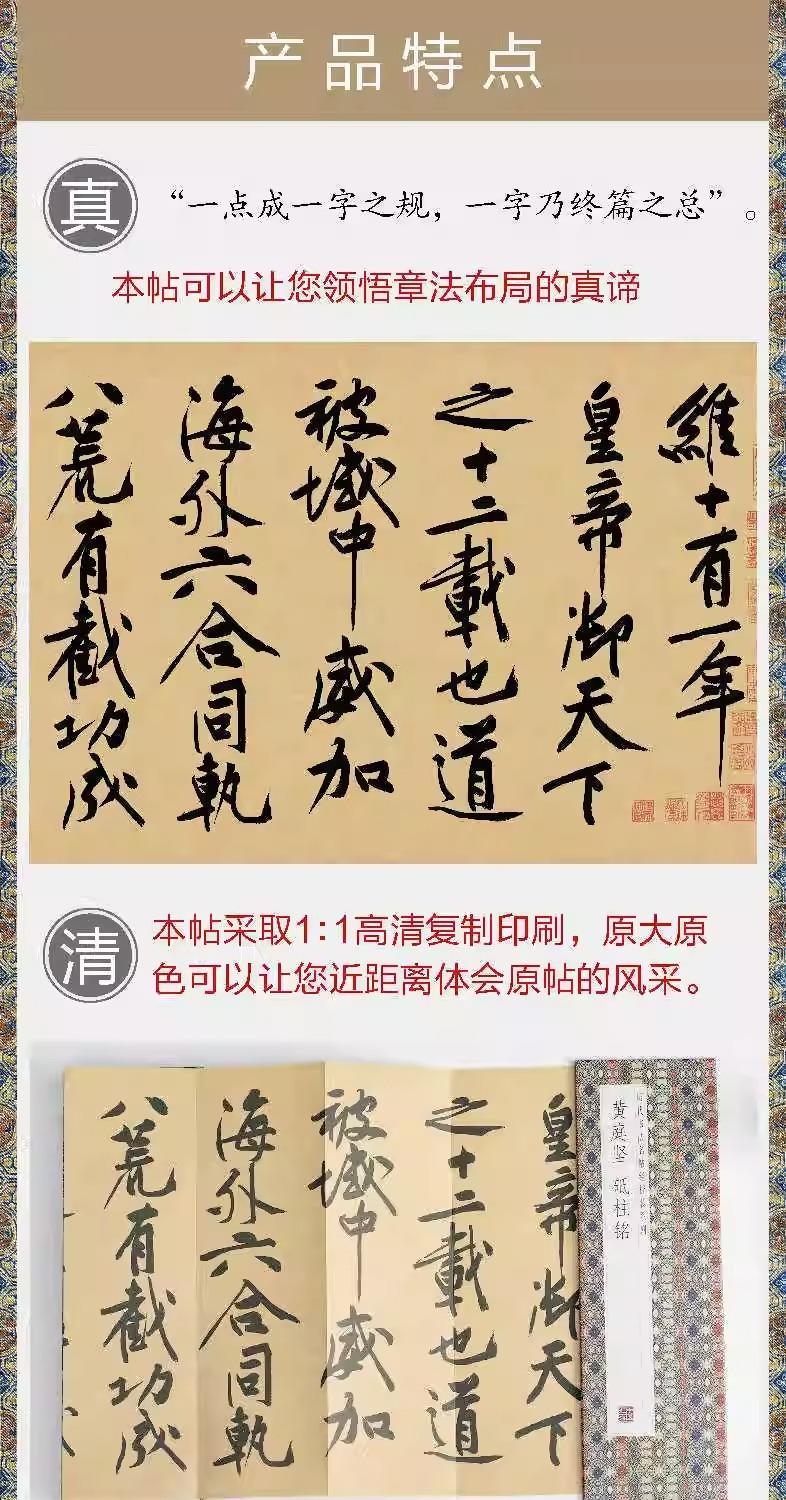 产品特点
真
“一点成一字之规，一字乃终篇之总”。
本帖可以让您领悟章法布局的真谛
維十有一年
皇帝御天下
之十二載也道
被域中威加
海外六合同軌
八荒有截功成
清
本帖采取1:1高清复制印刷，原大原
色可以让您近距离体会原帖的风采。
黄庭坚 砥柱铭
皇帝御天下
之十二載也道
被域中威加
海外六合同軌
八荒有截功成